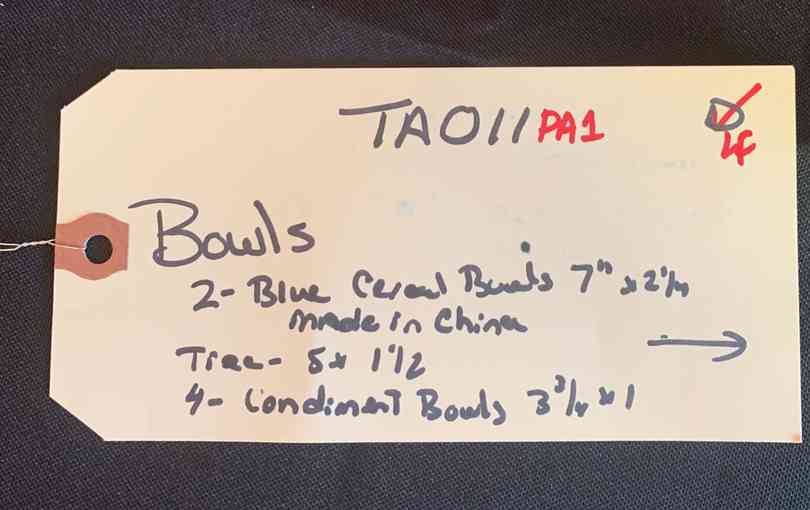 TA011 PA1
LF
Bowls
2- Blue Cereal Bowls 7" x 2 1/4
made in China
5 x 1 1/2
4- Condiment Bowls 3 3/4 x 1